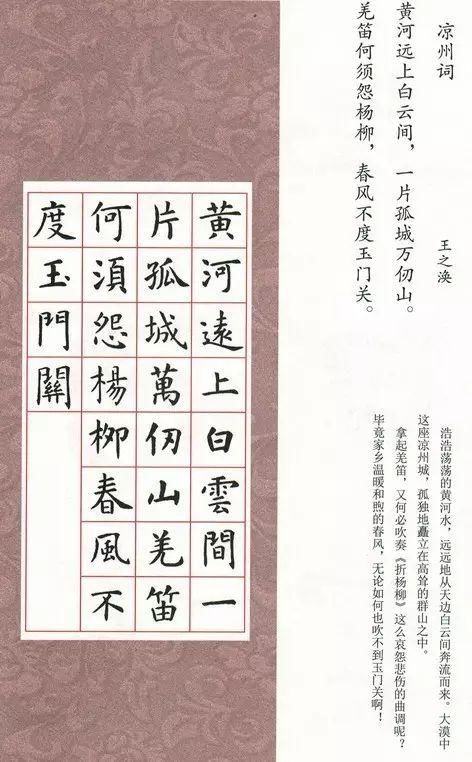 凉州词
王之涣
黄河远上白云间，一片孤城万仞山。
羌笛何须怨杨柳，春风不度玉门关。
浩浩荡荡的黄河水，远远地从天边白云间奔流而来。大漠中
这座凉州城，孤独地矗立在高耸的群山之中。
拿起羌笛，又何必吹奏《折杨柳》这么哀怨悲伤的曲调呢？
毕竟家乡温暖和煦的春风，无论如何也吹不到玉门关啊！
黄河遠上白雲間一
片孤城萬仞山羌笛
何須怨楊柳春風不
度玉門關